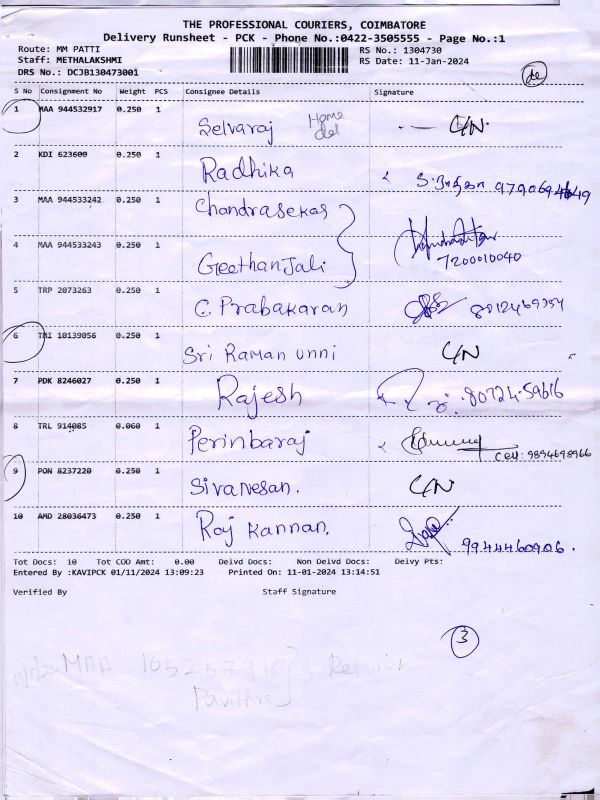 THE PROFESSIONAL COURIERS, COIMBATORE
Delivery Runsheet - PCK - Phone No.:0422-3505555 - Page No.:1
Route: MM PATTI RS No.: 1304730
Staff: METHALAKSHMI RS Date: 11-Jan-2024
DRS No.: DCJB130473001
S No Consignment No Weight PCS Consignee Details Signature
1 MAA 944532917 0.250 1 Selvaraj Home del
2 KDI 623600 0.250 1 Radhika
3 MAA 944533242 0.250 1 Chandrasekar
4 MAA 944533243 0.250 1 Geethanjali 7200010040
5 TRP 2073263 0.250 1 C. Prabakaran 8012469354
6 TMI 10139056 0.250 1 Sri Raman unni
7 PDK 8246027 0.250 1 Rajesh 80724 59616
8 TRL 914085 0.060 1 Perinbaraj Cell: 9894698966
9 PON 8237220 0.250 1 Sivanesan.
10 AMD 28036473 0.250 1 Raj Kannan. 9944460906.
Tot Docs: 10 Tot COD Amt: 0.00 Delvd Docs: Non Delvd Docs: Delvy Pts:
Entered By :KAVIPCK 01/11/2024 13:09:23 Printed On: 11-01-2024 13:14:51
Verified By Staff Signature
3
MAA Return
Pavithra